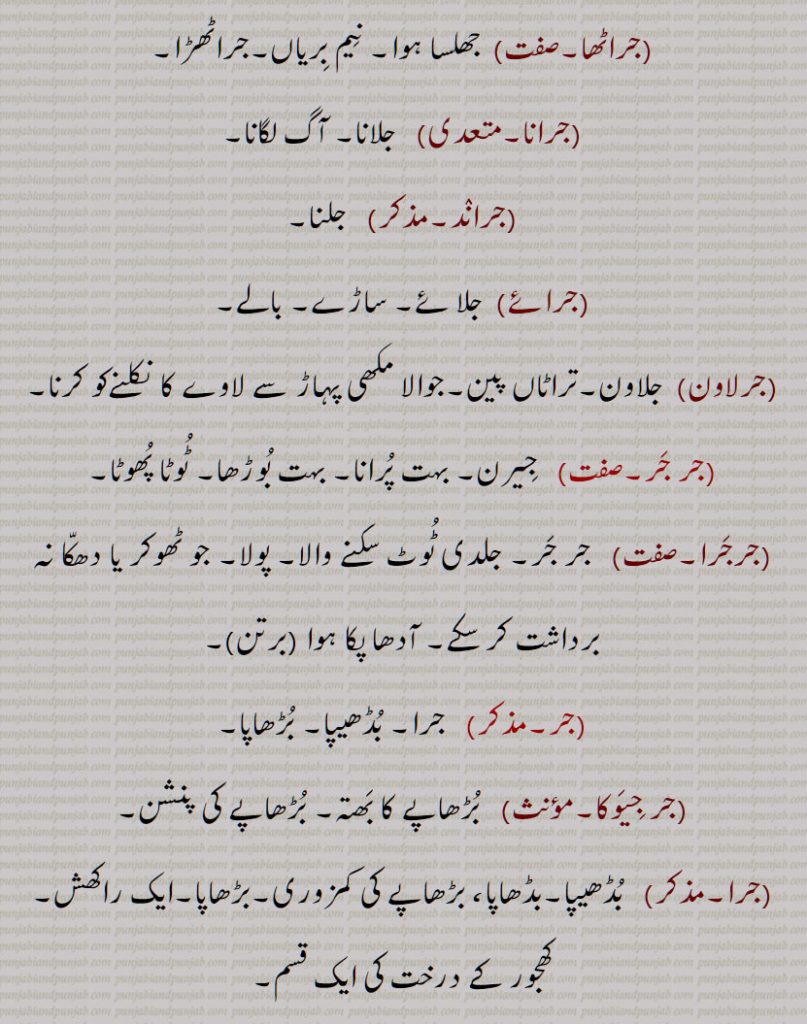 (جراٹھا۔صفت) جھلسا ہوا۔ نِیم بِریاں۔جراٹھڑا۔
(جرانا۔متعدی) جلانا۔ آگ لگانا۔
(جرانْد۔مذکر) جلنا۔
(جرائے) جلائے۔ ساڑے۔ بالے۔
(جرلاون) جلاون۔تراٹاں پین۔جوالا مکھی پہاڑ سے لاوے کا نکلنےکو کرنا۔
(جر جَر۔صفت) جِیرن۔ بہت پُرانا۔ بہت بُوڑھا۔ ٹُوٹا پُھوٹا۔
(جرجَرا۔صفت) جر جَر۔ جلدی ٹُوٹ سکنے والا۔ پولا۔ جو ٹھوکر یا دھکّا نہ
برداشت کر سکے۔ آدھا پکا ہوا (برتن)۔
(جر۔مذکر) جرا۔ بُڈھیپا۔ بُڑھاپا۔
(جر جِیَوکا۔مؤنث) بُڑھاپے کا بَھتہ۔ بُڑھاپے کی پنشن۔
(جرا۔مذکر) بُڈھیپا۔بڈھاپا، بڑھاپے کی کمزوری۔بڑھاپا۔ایک راکھش۔
کھجور کے درخت کی ایک قسم۔